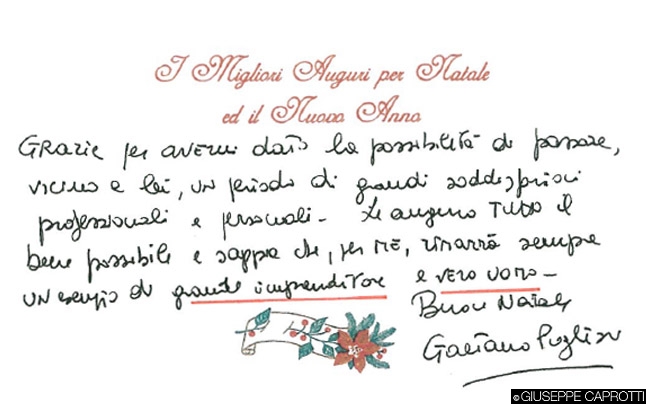 I Migliori Auguri per Natale
ed il Nuovo Anno
GRAZIE per avermi dato la possibilità di passare,
vicino a lei, un periodo di grandi soddisfazioni
professionali e personali - Le auguro TUTTO il
bene possibile e sappia che, per ME, rimarrà sempre
un esempio di grande imprenditore e vero uomo -
Buon Natale
Gaetano Puglisi
©GIUSEPPE CAPROTTI